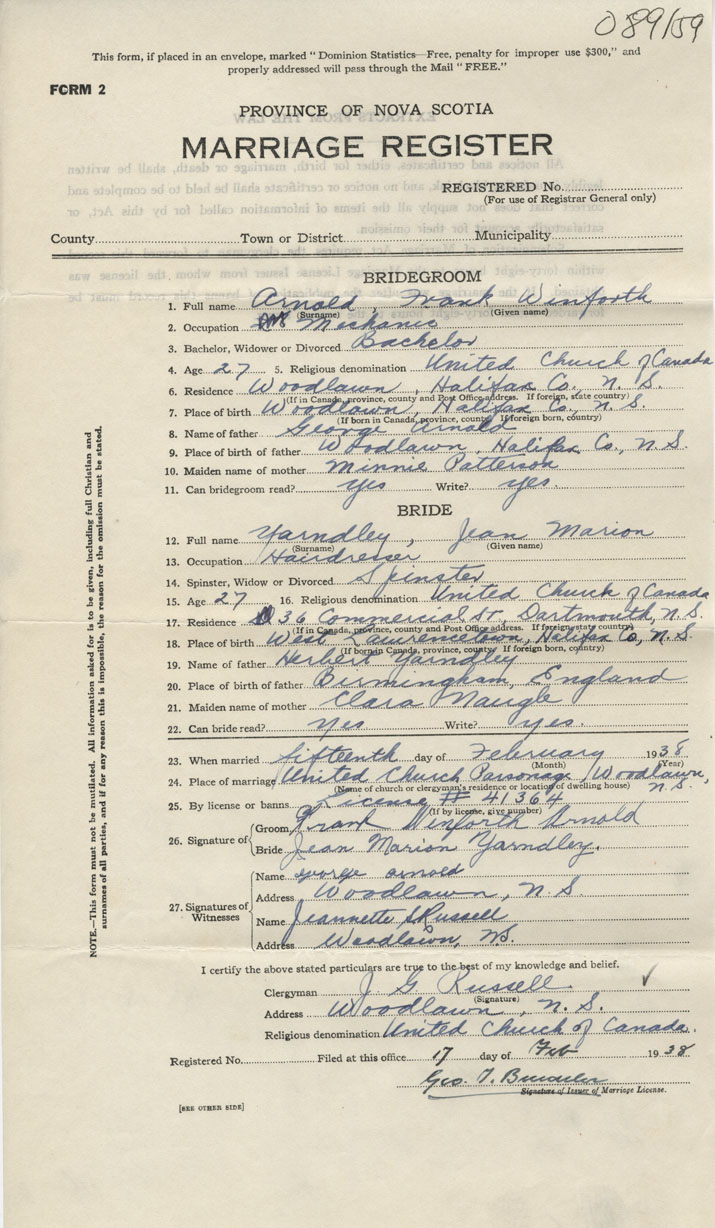 089/59
This form, if placed in an envelope, marked "Dominion Statistics—Free, penalty for improper use $300," and
properly addressed will pass through the Mail "FREE."
FORM 2
PROVINCE OF NOVA SCOTIA
MARRIAGE REGISTER
REGISTERED No.
(For use of Registrar General only)
County Town or District Municipality
BRIDEGROOM
1. Full name Arnold, Frank Winforth
(Surname) (Given name)
2. Occupation Mechanic
3. Bachelor, Widower or Divorced Bachelor
4. Age 27 5. Religious denomination United Church of Canada
6. Residence Woodlawn, Halifax Co., N. S.
(If in Canada, province, county and Post Office address. If foreign, state country)
7. Place of birth Woodlawn, Halifax Co., N. S.
(If born in Canada, province, county. If foreign born, country)
8. Name of father George Arnold
9. Place of birth of father Woodlawn, Halifax Co., N. S.
10. Maiden name of mother Minnie Patterson
11. Can bridegroom read? yes Write? yes.
BRIDE
12. Full name Yarndley, Jean Marion
(Surname) (Given name)
13. Occupation Hairdresser
14. Spinster, Widow or Divorced Spinster
15. Age 27 16. Religious denomination United Church of Canada
17. Residence 36 Commercial St Dartmouth, N. S.
(If in Canada, province, county and Post Office address. If foreign state country)
18. Place of birth West Lawrencetown, Halifax Co., N. S.
(If born in Canada, province, county. If foreign born, country)
19. Name of father Herbert Yarndley
20. Place of birth of father Birmingham, England
21. Maiden name of mother Clara Naugle
22. Can bride read? Yes Write? yes.
23. When married fifteenth day of February 1938
(Month) (Year)
24. Place of marriage United Church Parsonage, Woodlawn, N. S.
(Name of church or clergyman's residence or location of dwelling house)
25. By license or banns License # 41364
(If by license, give number)
26. Signature of
Groom Frank Winforth Arnold
Bride Jean Marion Yarndley.
27. Signatures of Witnesses
Name George Arnold
Address Woodlawn, N. S.
Name Jeannette S Russell
Address Woodlawn, N.S.
I certify the above stated particulars are true to the best of my knowledge and belief.
Clergyman J. G. Russell
(Signature)
Address Woodlawn, N. S.
Religious denomination United Church of Canada.
Registered No. Filed at this office 17 day of Feb 1938
Geo. T.
Signature of Issuer of Marriage License.
[SEE OTHER SIDE]
NOTE.—This form must not be mutilated. All information asked for is to be given, including full Christian and
surnames of all parties, and if for any reason this is impossible, the reason for the omission must be stated.